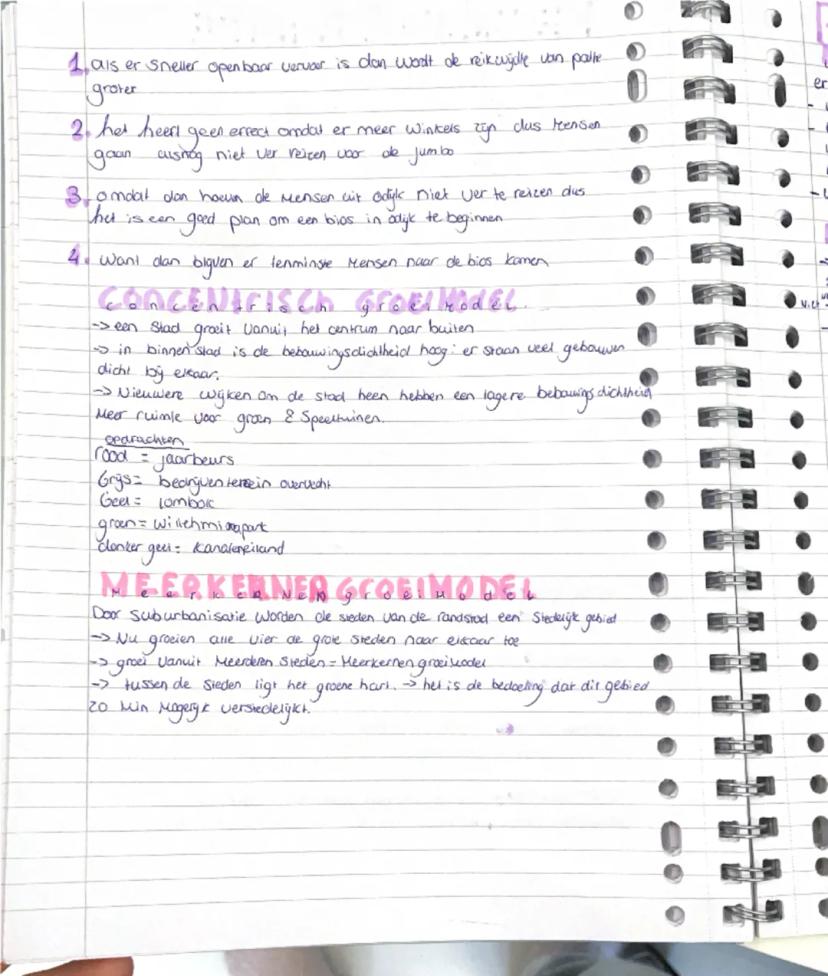 1. als er sneller openbaar vervoer is dan wordt de reikwijdte van pathe
groter
2. het heeft geen effect omdat er meer winkels zijn dus mensen
gaan alsnog niet ver reizen voor de jumbo
3. omdat dan hoeven de mensen uit odijk niet ver te reizen dus
het is een goed plan om een bios in odijk te beginnen
4. want dan blijven er tenminste mensen naar de bios komen
CONCENTRISCH GROEIMODEL
-> een stad groeit vanuit het centrum naar buiten
-> in binnenstad is de bebouwingsdichtheid hoog: er staan veel gebouwen
dicht bij elkaar.
-> Nieuwere wijken om de stad heen hebben een lagere bebouwingsdichtheid
Meer ruimte voor groen & speeltuinen.
opdrachten
rood = jaarbeurs
Grijs = bedrijventerrein overvecht
Geel = lombok
groen = wilhelminapark
donker geel = kanaleneiland
MEERKERNEN GROEIMODEL
Door suburbanisatie worden de steden van de randstad een stedelijk gebied
-> Nu groeien alle vier de grote steden naar elkaar toe
-> groei vanuit meerderen steden = Meerkernengroeimodel
-> tussen de steden ligt het groene hart. -> het is de bedoeling dat dit gebied
zo min mogelijk verstedelijkt.
er